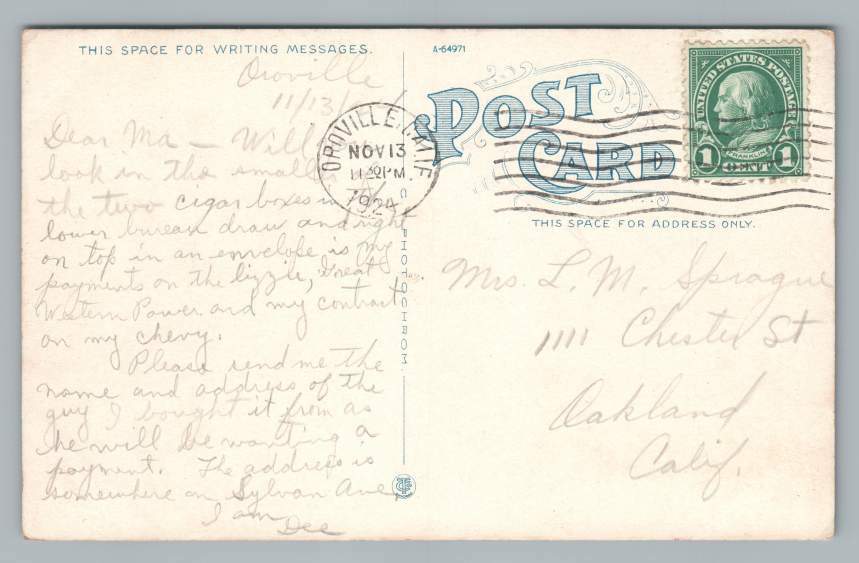 THIS SPACE FOR WRITING MESSAGES.
A-64971
Oroville
11/13/
Dear Ma — Will
look in the small
the two cigar boxes in
lower bureau draw and right
on top in an envelope is my
payments on the lizzie, Great
Western Power and my contract
on my chevy.
Please send me the
name and address of the
guy I bought it from as
he will be wanting a
payment. The address is
somewhere on Sylvan Ave,
I am
Dee
OROVILLE, CALIF.
NOV 13
1924
POST
CARD
UNITED STATES POSTAGE
FRANKLIN
1 CENT 1
THIS SPACE FOR ADDRESS ONLY.
PHOTOCHROM.
Mrs. L. M. Sprague
1111 Chester St
Oakland
Calif.